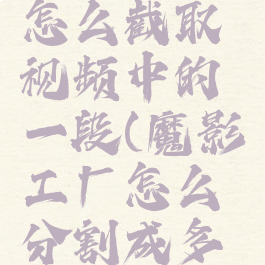 怎么截取
视频中的
一段(魔影
工厂怎么
分割成多